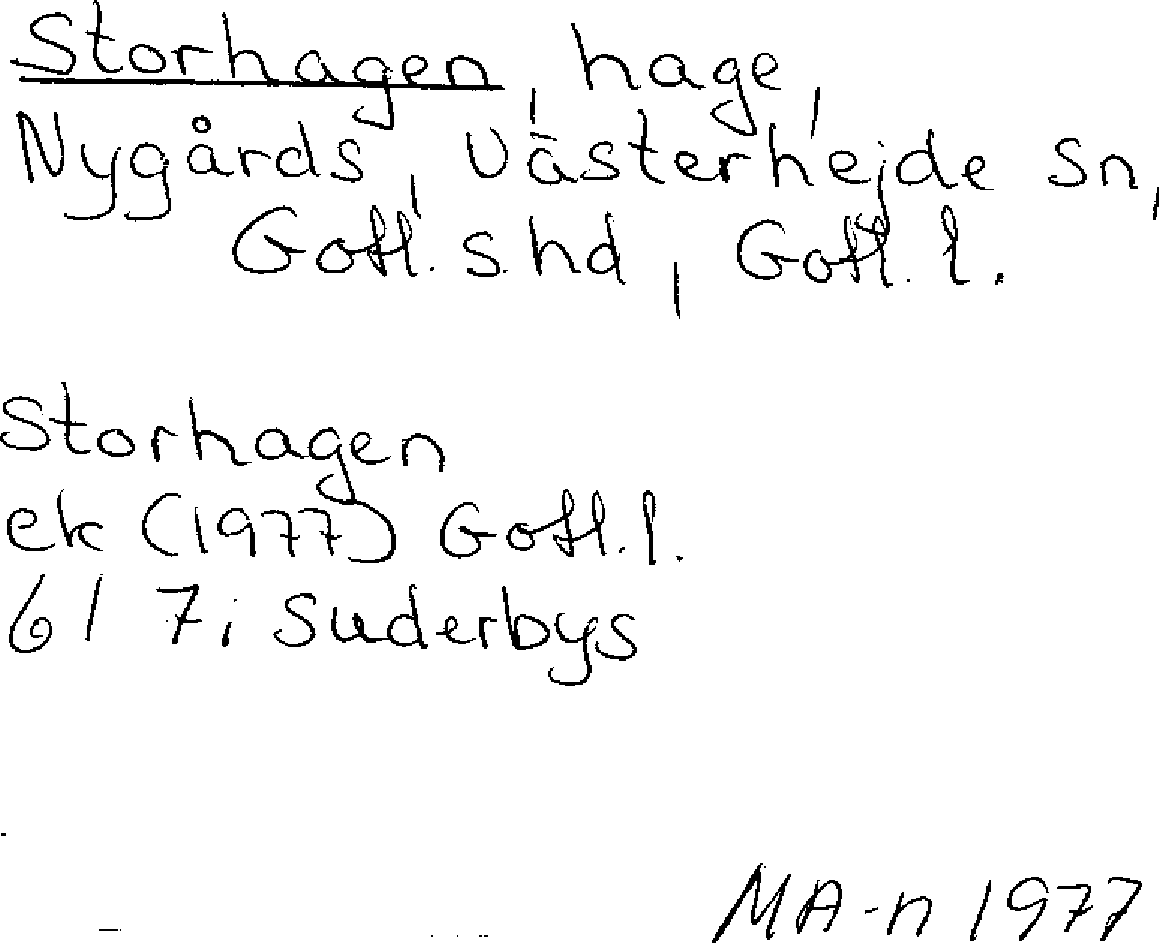 Storhagen, hage,
Nygårds, Västerhejde sn,
Gotl. s. hd, Gotl. l.
Storhagen
ek (1977) Gotl. l.
6I 7i Suderbys
MA-n 1977